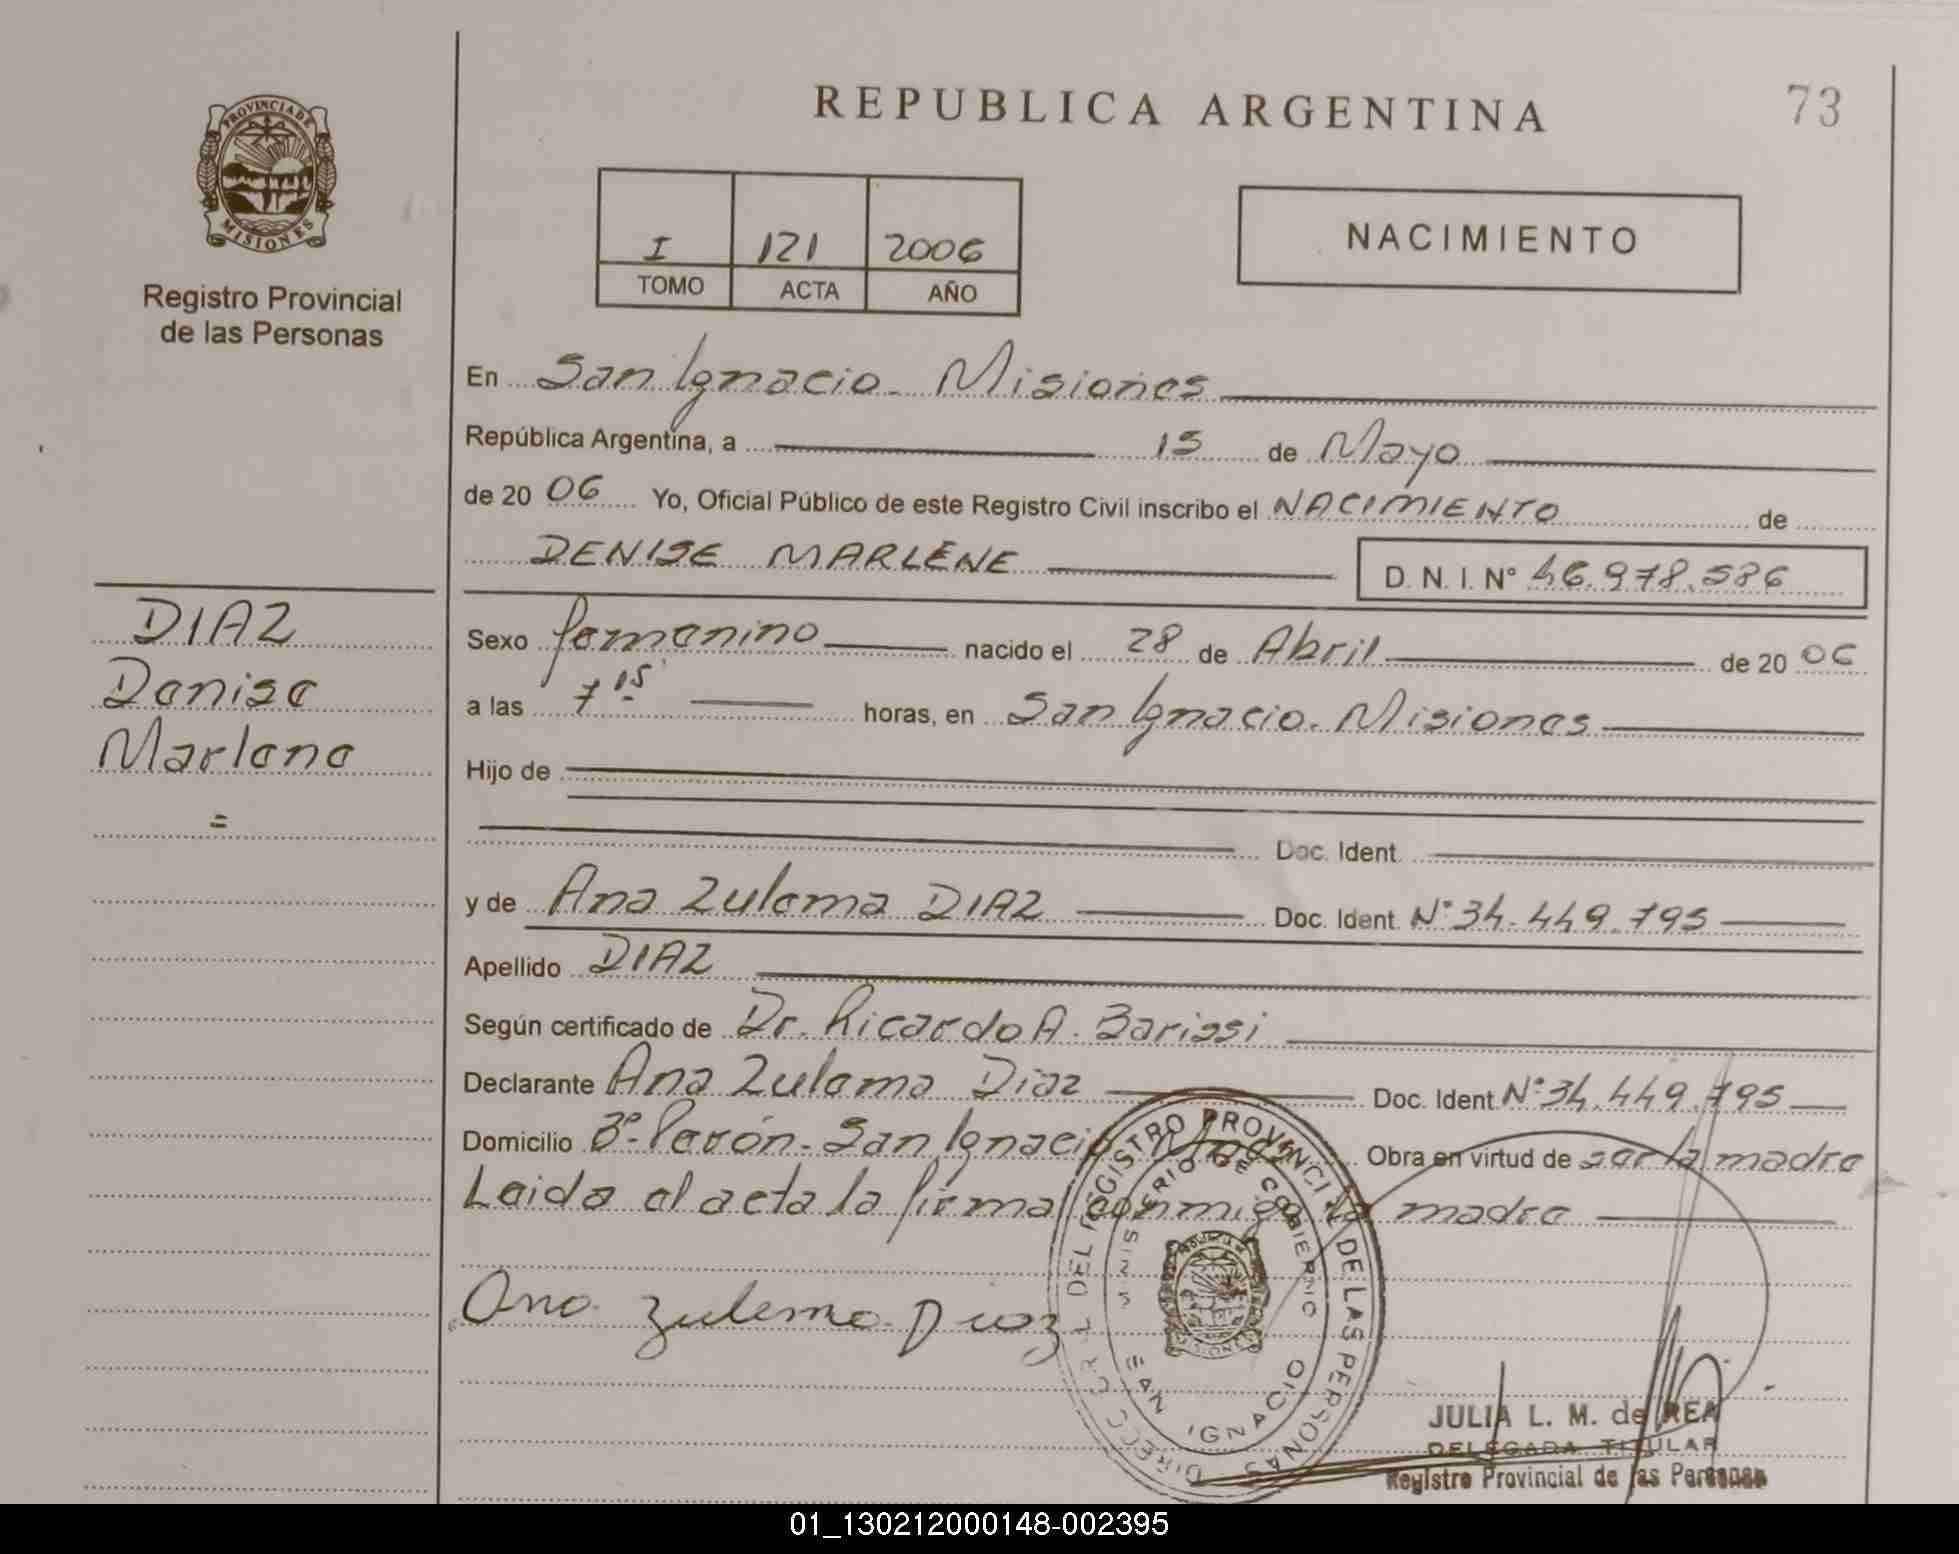 PROVINCIA DE
MISIONES
Registro Provincial
de las Personas
REPUBLICA ARGENTINA
73
I 121 2006
TOMO ACTA AÑO
NACIMIENTO
En San Ignacio - Misiones
República Argentina, a 15 de Mayo
de 20 06 Yo, Oficial Público de este Registro Civil inscribo el NACIMIENTO de
DENISE MARLENE D. N. I. N° 46.978.586
DIAZ
Denise
Marlene
=
Sexo femenino nacido el 28 de Abril de 20 06
a las 7 15 horas, en San Ignacio. Misiones
Hijo de
Doc. Ident.
y de Ana Zulema DIAZ Doc. Ident. N° 34.449.795
Apellido DIAZ
Según certificado de Dr. Ricardo A. Barissi
Declarante Ana Zulema Diaz Doc. Ident. N° 34.449.795
Domicilio B° Perón - San Ignacio Mnes Obra en virtud de ser la madre
Leido el acta la firma conmigo la madre
Ana Zulema Diaz
DIRECC. GRAL. DEL REGISTRO PROVINCIAL DE LAS PERSONAS
MINISTERIO DE GOBIERNO
SAN IGNACIO
JULIA L. M. de REA
DELEGADA TITULAR
Registro Provincial de las Personas
01_130212000148-002395